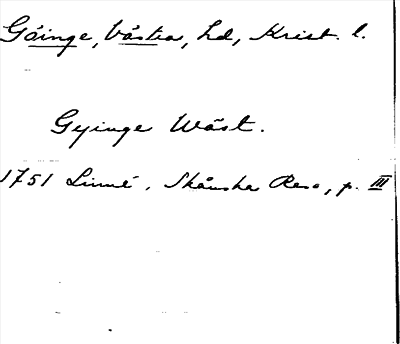 Gäinge, Västra, hd, Krist. l.
Gyinge Wäst.
1751 Linné, Skånska Resa, p. III